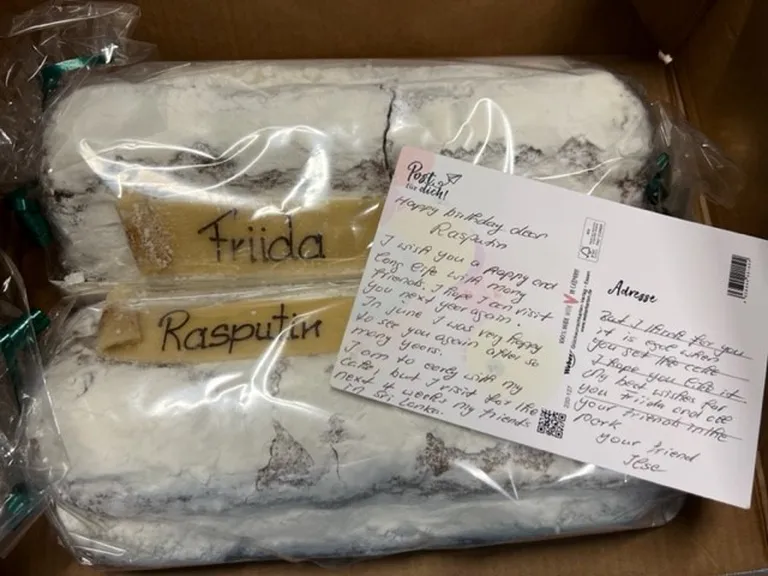 Friida
Rasputin
Post
für dich!
Happy birthday dear
Rasputin
I wish you a happy and
long life with many
friends. I hope I can visit
you next year again.
In june I was very happy
to see you again after so
many years.
I am to early with my
cake, but I visit for the
next 4 weeks my friends
in Sri Lanka.
Adresse
But I think for you
it is ok when
you get the cake
I hope you like it
My best wishes for
you Friida and all
your friends in the
park
your friend